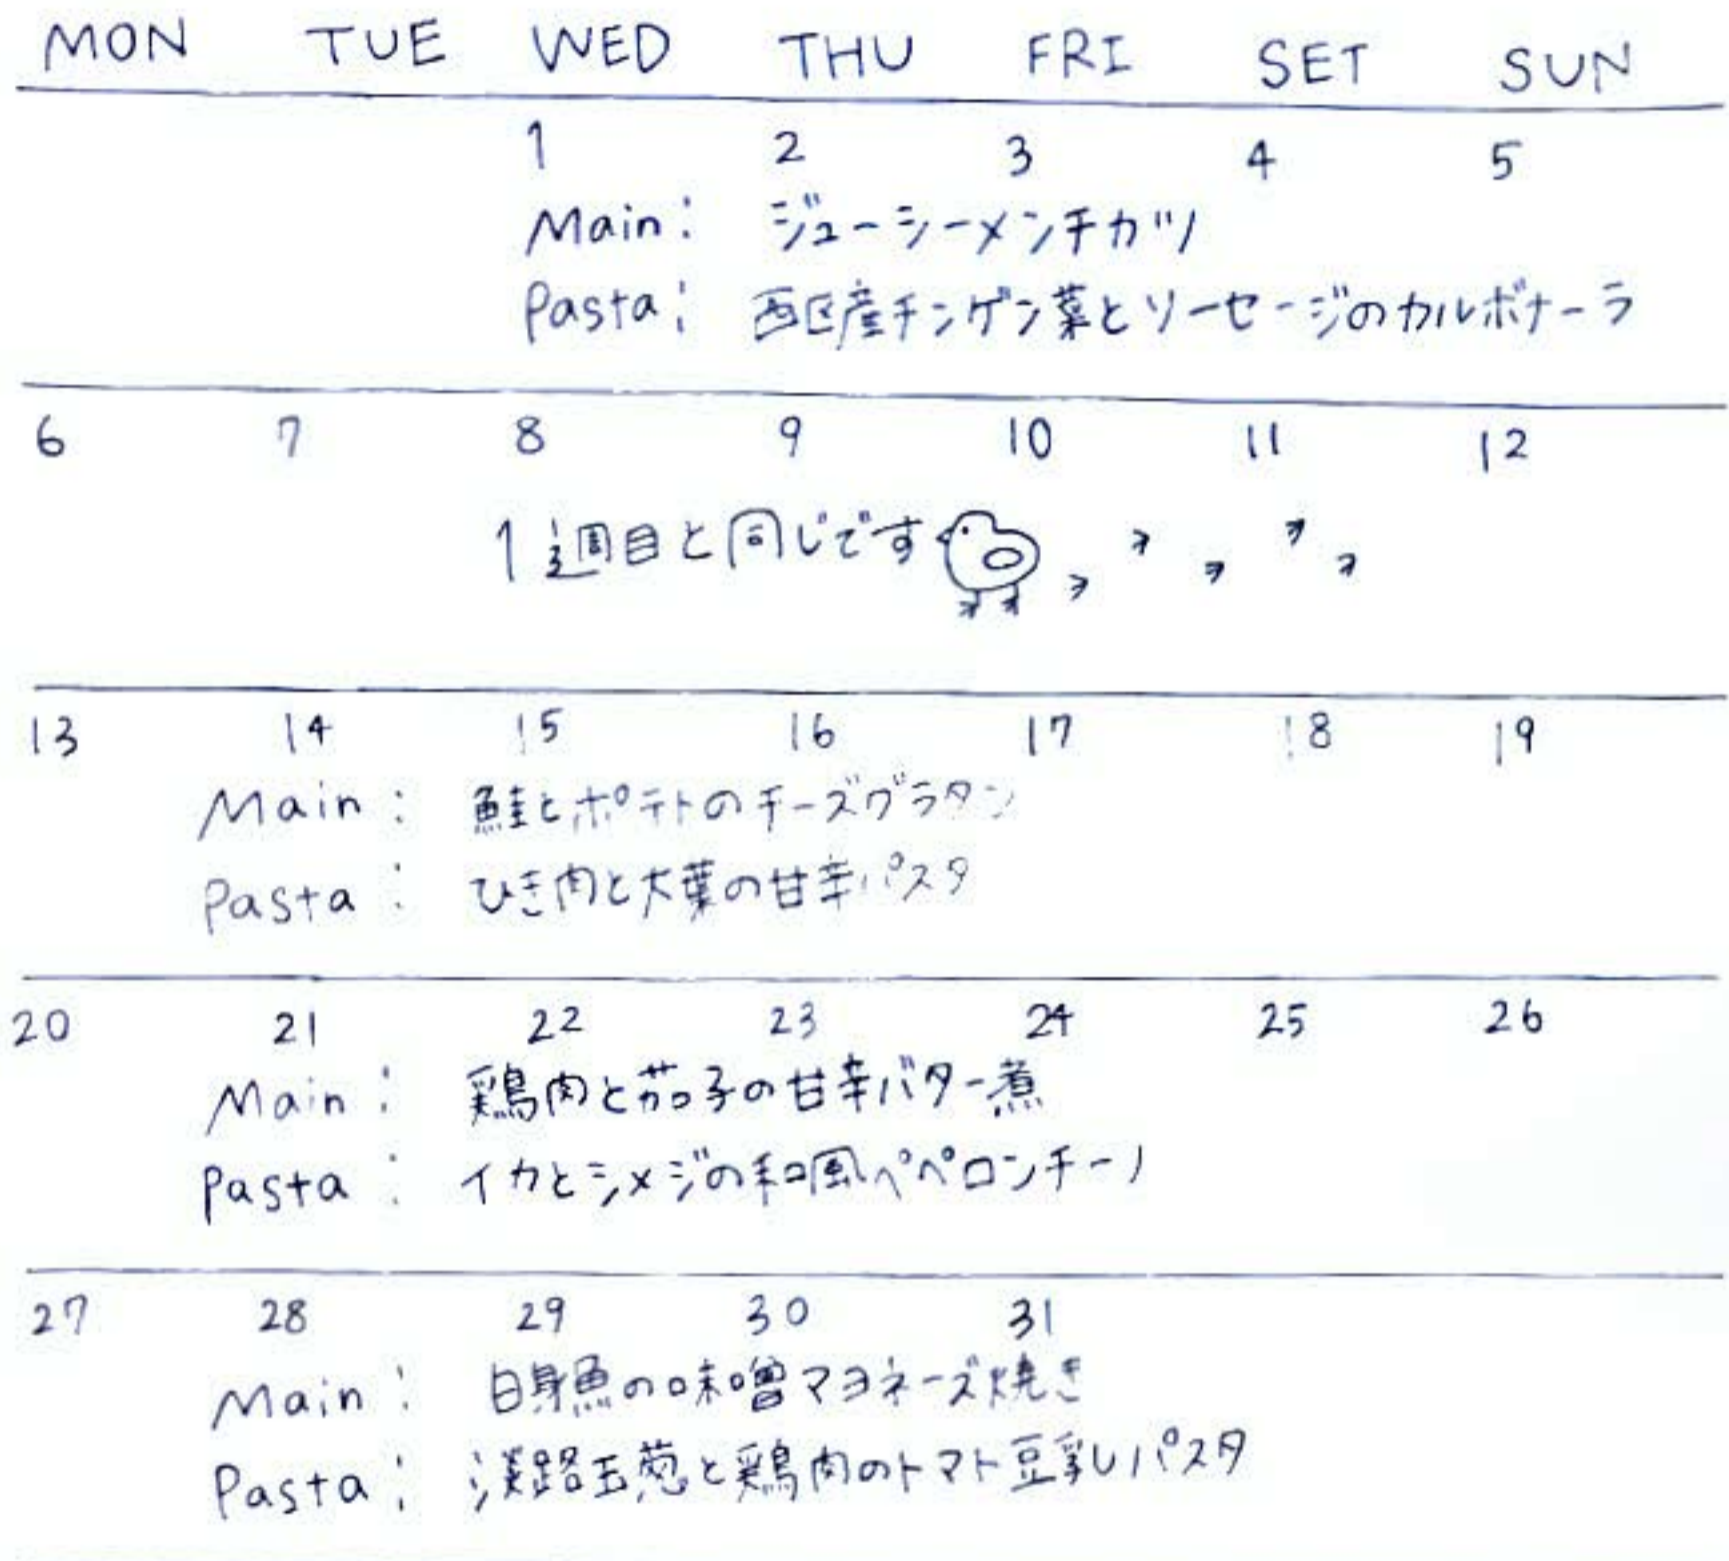 MON TUE WED THU FRI SET SUN
1 2 3 4 5
Main: ジューシーメンチカツ
Pasta: 西区産チンゲン菜とソーセージのカルボナーラ
6 7 8 9 10 11 12
1週目と同じです
13 14 15 16 17 18 19
Main: 鮭とポテトのチーズグラタン
Pasta: ひき肉と大葉の甘辛パスタ
20 21 22 23 24 25 26
Main: 鶏肉と茄子の甘辛バター煮
Pasta: イカとシメジの和風ペペロンチーノ
27 28 29 30 31
Main: 白身魚の味噌マヨネーズ焼き
Pasta: 淡路玉葱と鶏肉のトマト豆乳パスタ